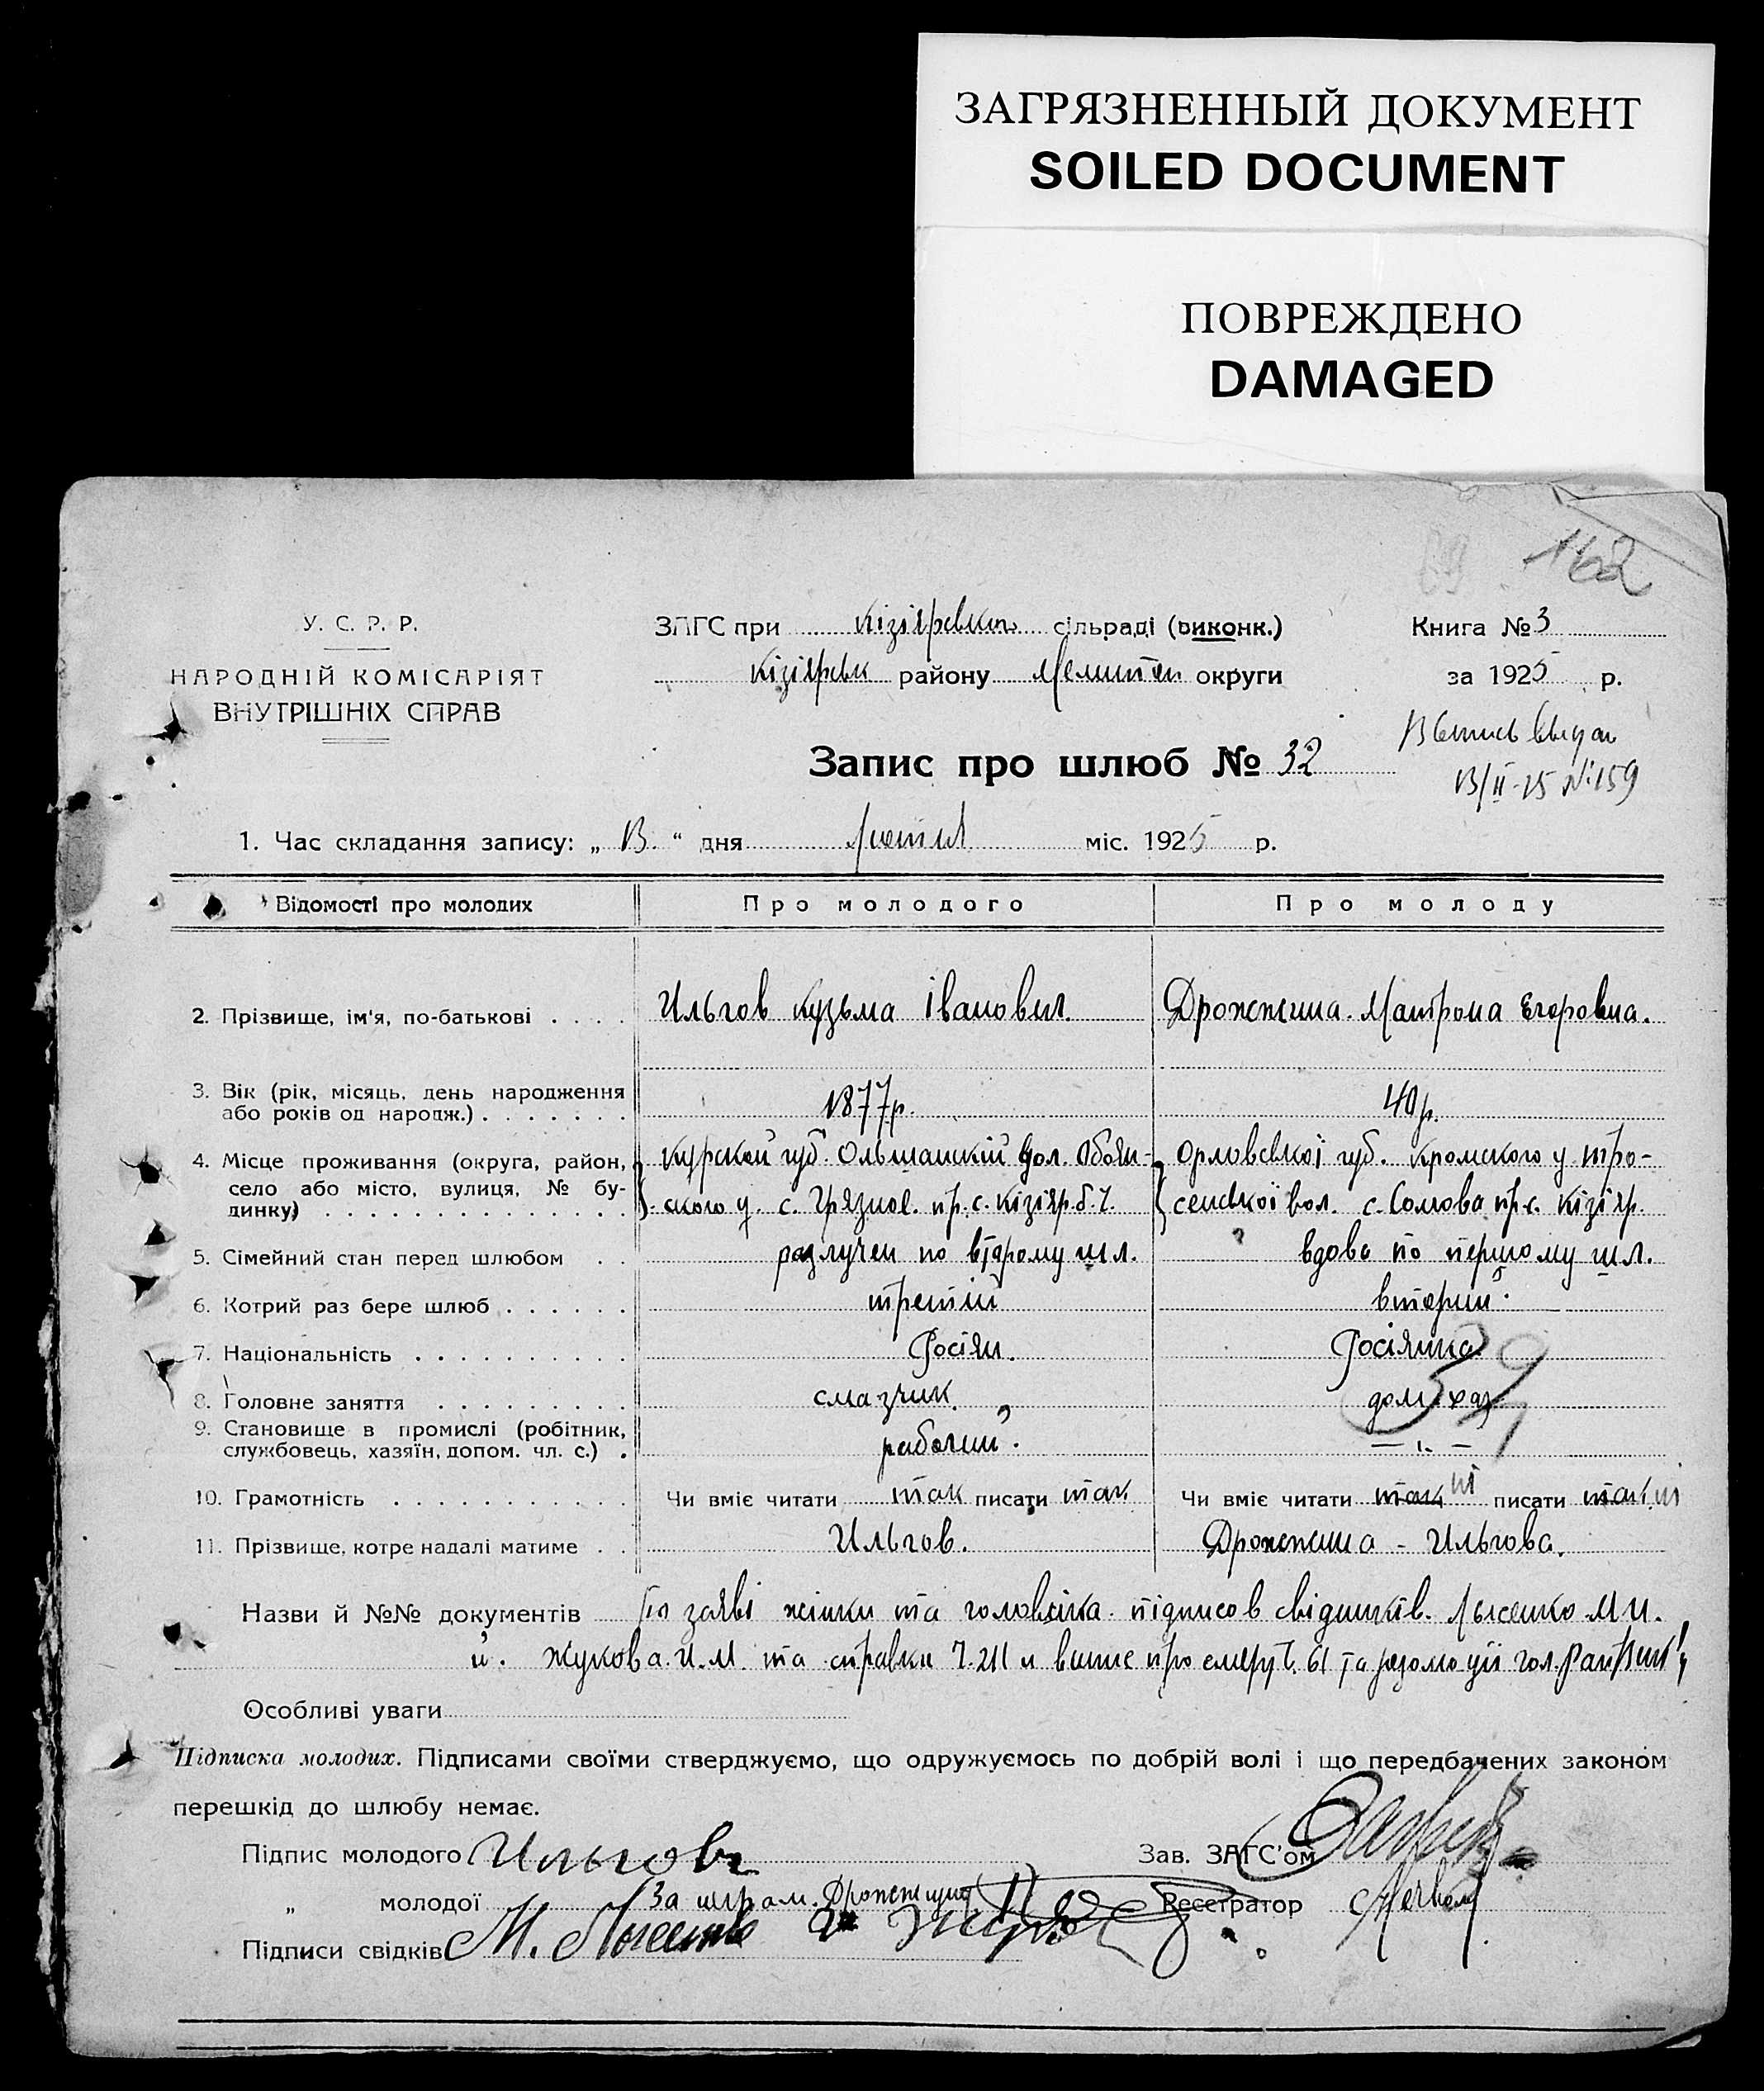 ЗАГРЯЗНЕННЫЙ ДОКУМЕНТ
SOILED DOCUMENT
ПОВРЕЖДЕНО
DAMAGED
162
У. С. Р. Р.
НАРОДНІЙ КОМІСАРІЯТ
ВНУТРІШНІХ СПРАВ
ЗАГС при Кізіярській сільраді (виконк.)
Кізіярськ району Мелитоп округи
Книга № 3
за 1925 р.
Запис про шлюб № 32
Выпись выдан
13/II-25 №159
1. Час складання запису: „ 13. “ дня Лютия міс. 1925 р.
Відомості про молодих Про молодого Про молоду
2. Прізвище, ім'я, по-батькові . . . . Ильгов Кузьма Іванович. Дрожжина. Матрона Егоровна.
3. Вік (рік, місяць, день народження
або років од народж.) . . . . . . . 1877р. 40р.
4. Місце проживання (округа, район,
село або місто, вулиця, № бу-
динку) . . . . . . . . . . . . . .
Курской губ. Ольшанскій вол. Обоян-
ского у. с. Грязное. пр. с. Кізіяр. б. ч.
Орловської губ. Кромского у Тро-
сенської вол. с. Сомова пр. с. Кізіяр.
5. Сімейний стан перед шлюбом . . разлучен по втрому шл. вдова по першому шл.
6. Котрий раз бере шлюб . . . . . . третій вторий.
7. Національність . . . . . . . . . . Росіян. Росіянка
8. Головне заняття . . . . . . . . . смазчик. дом. хаз
39
9. Становище в промислі (робітник,
службовець, хазяїн, допом. чл. с.) . рабочий. — „ —
10. Грамотність . . . . . . . . . . . Чи вміє читати так писати так Чи вміє читати так ні писати так ні
11. Прізвище, котре надалі матиме . . Ильгов. Дрожжина - Ильгова.
Назви й №№ документів По заяві жінки та головіка. підписов свідитків. Лысенко М И.
й. Жукова. И. М. та справки Ч. 211 и випис про смерт Ч. 61 та резолюції гол.
Особливі уваги
Підписка молодих. Підписами своїми стверджуємо, що одружуємось по добрій волі і що передбачених законом
перешкід до шлюбу немає.
Підпис молодого Ильговъ Зав. ЗАГС'ом
„ молодої За неграм. Дрожжину Реєстратор
Підписи свідків М. Лысенко Жуков